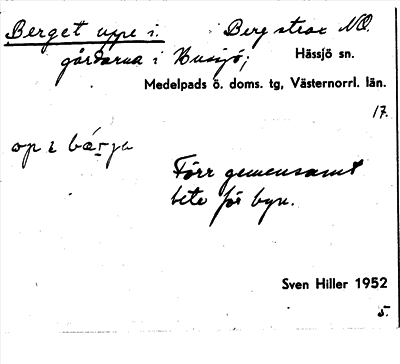 Berget uppe i. Bergstrax NO.
gårdarna i Husjö; Hässjö sn.
Medelpads ö. doms. tg, Västernorrl. län.
17.
Förr gemensamt
bete för byn.
Sven Hiller 1952
5.